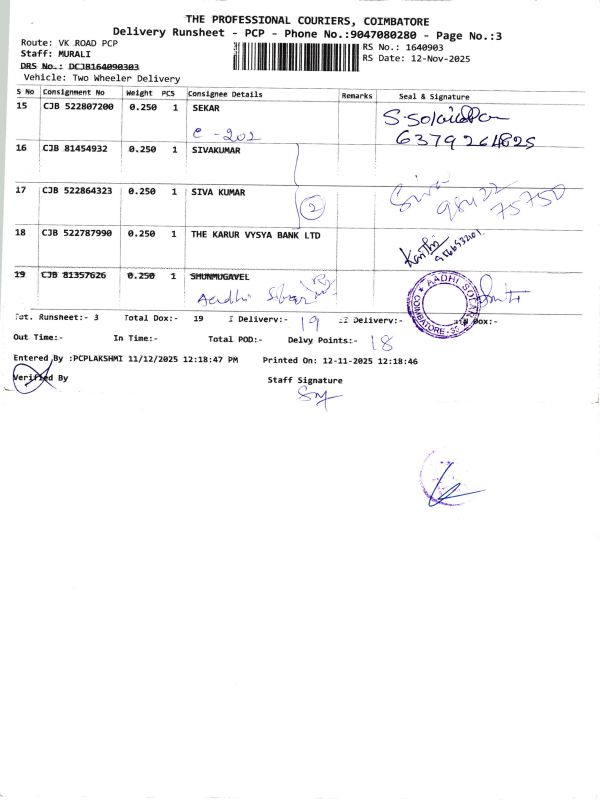 THE PROFESSIONAL COURIERS, COIMBATORE
Delivery Runsheet - PCP - Phone No.:9047080280 - Page No.:3
Route: VK ROAD PCP
RS No.: 1640903
Staff: MURALI
RS Date: 12-Nov-2025
DRS No.: DCJB164090303
Vehicle: Two Wheeler Delivery
S No Consignment No Weight PCS Consignee Details Remarks Seal & Signature
15 CJB 522807200 0.250 1 SEKAR
C-202
6379264825
16 CJB 81454932 0.250 1 SIVAKUMAR
17 CJB 522864323 0.250 1 SIVA KUMAR
2
Siva
98422
75750
18 CJB 522787990 0.250 1 THE KARUR VYSYA BANK LTD
19 CJB 81357626 0.250 1 SHUNMUGAVEL
Aadhi
AADHI SOLAR
COIMBATORE
Tot. Runsheet:- 3 Total Dox:- 19 I Delivery:- 19 II Delivery:- Dox:-
Out Time:- In Time:- Total POD:- Delvy Points:- 18
Entered By :PCPLAKSHMI 11/12/2025 12:18:47 PM Printed On: 12-11-2025 12:18:46
Verified By
Staff Signature